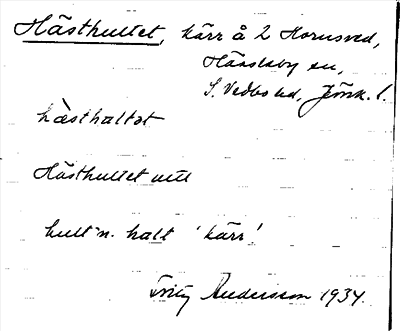 Hästhultet, kärr å 2 Hornsved,
Hässleby sn,
S. Vedbo hd, Jönk. l.
hæsthaltət
Hästhultet utt
hult n. halt 'kärr'!
Fritz Andersson 1934.